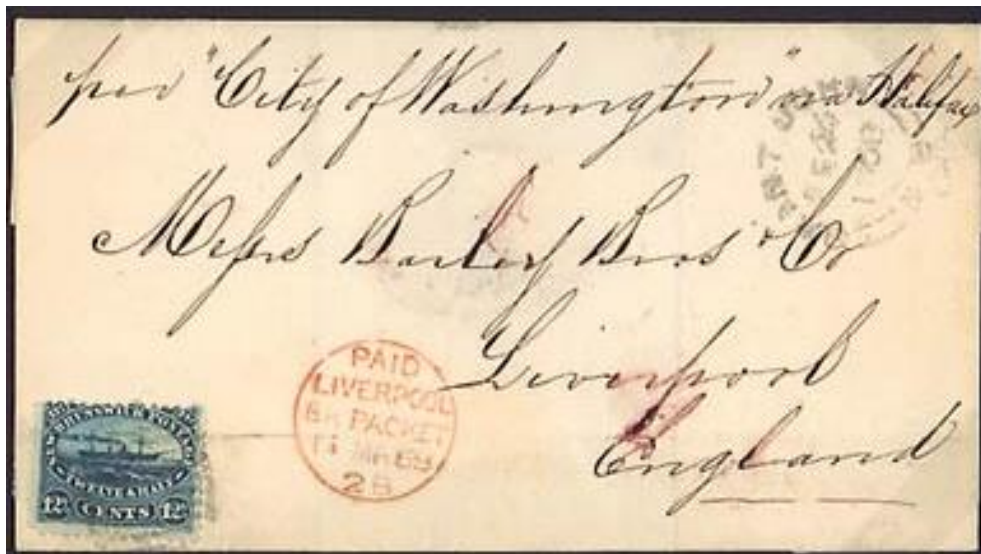 per "City of Washington" via Halifax
Messrs Bailey Bros & Co
Liverpool
England
PAID
LIVERPOOL
BR PACKET
11 MR 68
2B
NEW BRUNSWICK POSTAGE
TWELVE & HALF
12½ CENTS 12½